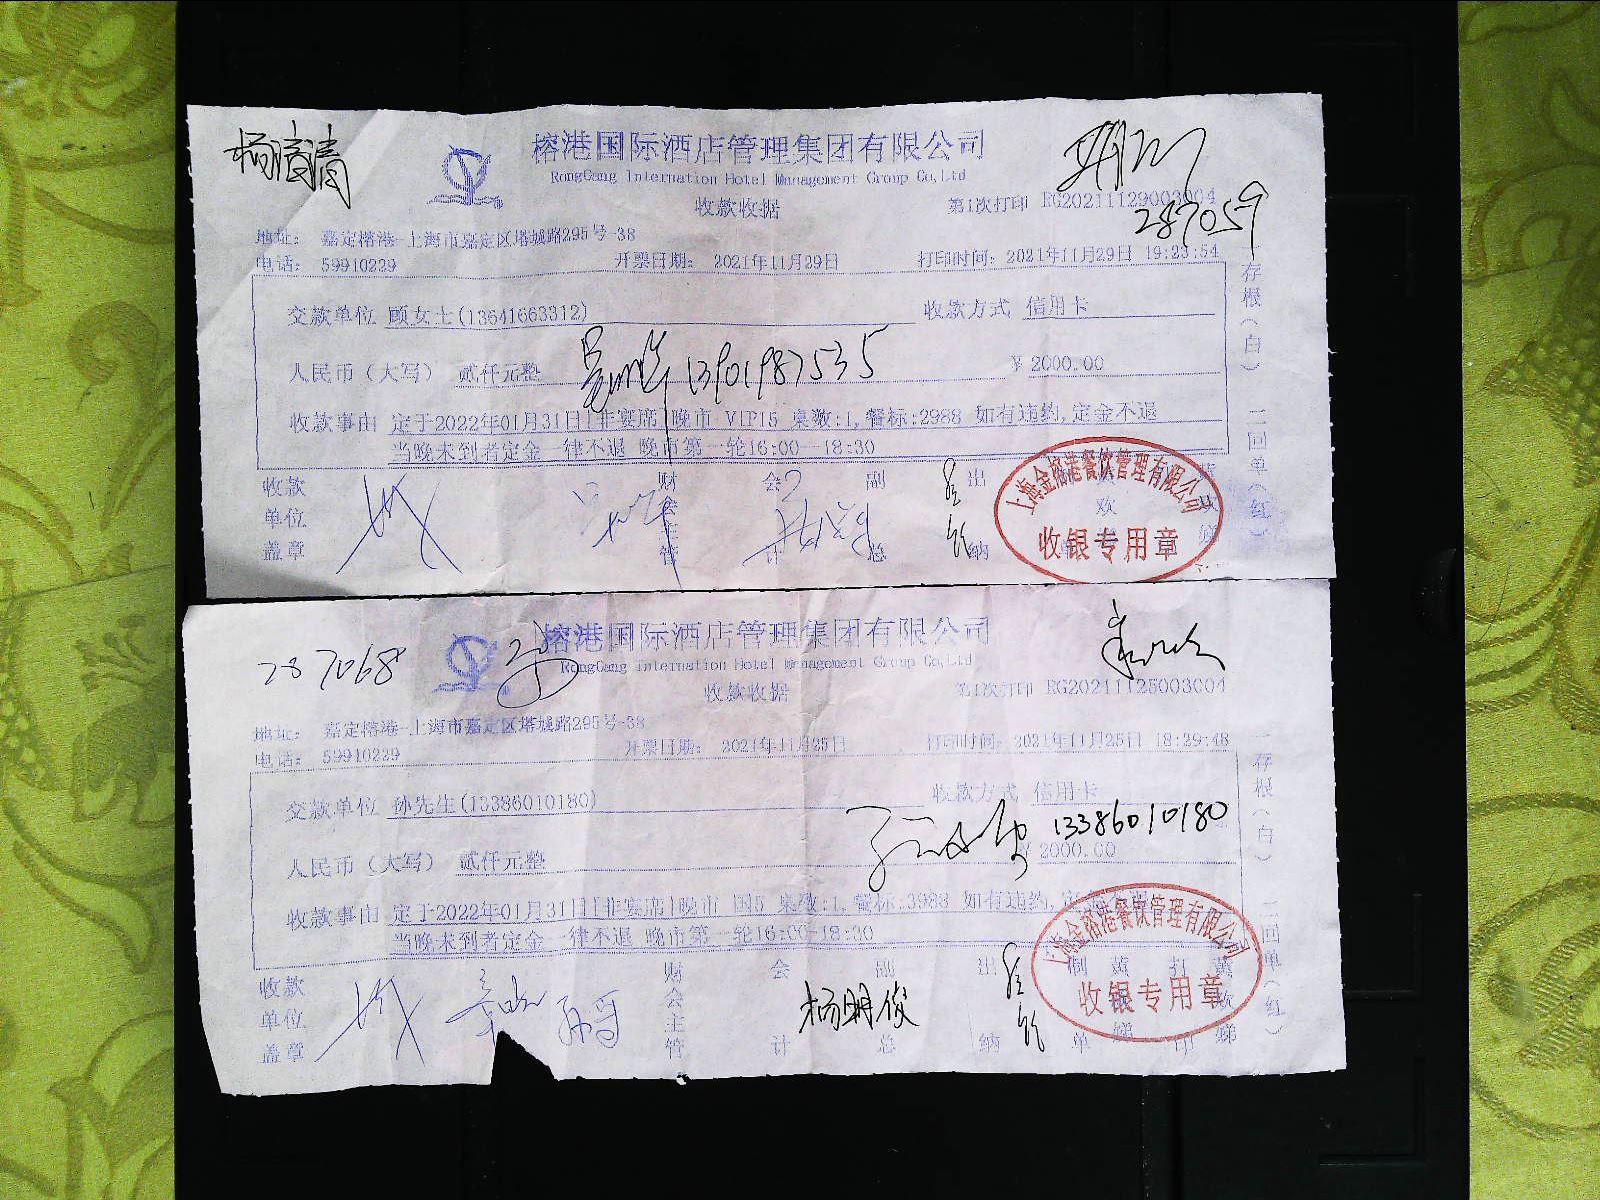 杨清清
榕港国际酒店管理集团有限公司
RongGang Internation Hotel Management Group Co,Ltd
收款收据
第1次打印 RG20211129003004
287059
地址: 嘉定榕港-上海市嘉定区塔城路295号-38
电话: 59910229 开票日期: 2021年11月29日 打印时间: 2021年11月29日 19:23:54
交款单位 顾女士(13641663312) 收款方式 信用卡
人民币（大写） 贰仟元整 13901987535 ¥ 2000.00
收款事由 定于2022年01月31日[非宴席]晚市 VIP15 桌数:1,餐标:2988 如有违约,定金不退
当晚未到者定金一律不退 晚市第一轮16:00--18:30
收款单位盖章 财会主管 会计 副总 出纳
上海金榕港餐饮管理有限公司
收银专用章
存根(白) 二回单(红)
287068
榕港国际酒店管理集团有限公司
RongGang Internation Hotel Management Group Co,Ltd
收款收据
第1次打印 RG20211125003004
地址: 嘉定榕港-上海市嘉定区塔城路295号-38
电话: 59910229 开票日期: 2021年11月25日 打印时间: 2021年11月25日 18:29:48
交款单位 孙先生(13386010180) 收款方式 信用卡
13386010180
人民币（大写） 贰仟元整 ¥ 2000.00
收款事由 定于2022年01月31日[非宴席]晚市 国5 桌数:1,餐标:3988 如有违约,定金不退
当晚未到者定金一律不退 晚市第一轮16:00--18:30
收款单位盖章 财会主管 会计 副总 杨明俊 出纳 制单 黄欢娣 打印 黄欢娣
上海金榕港餐饮管理有限公司
收银专用章
一存根(白) 二回单(红)